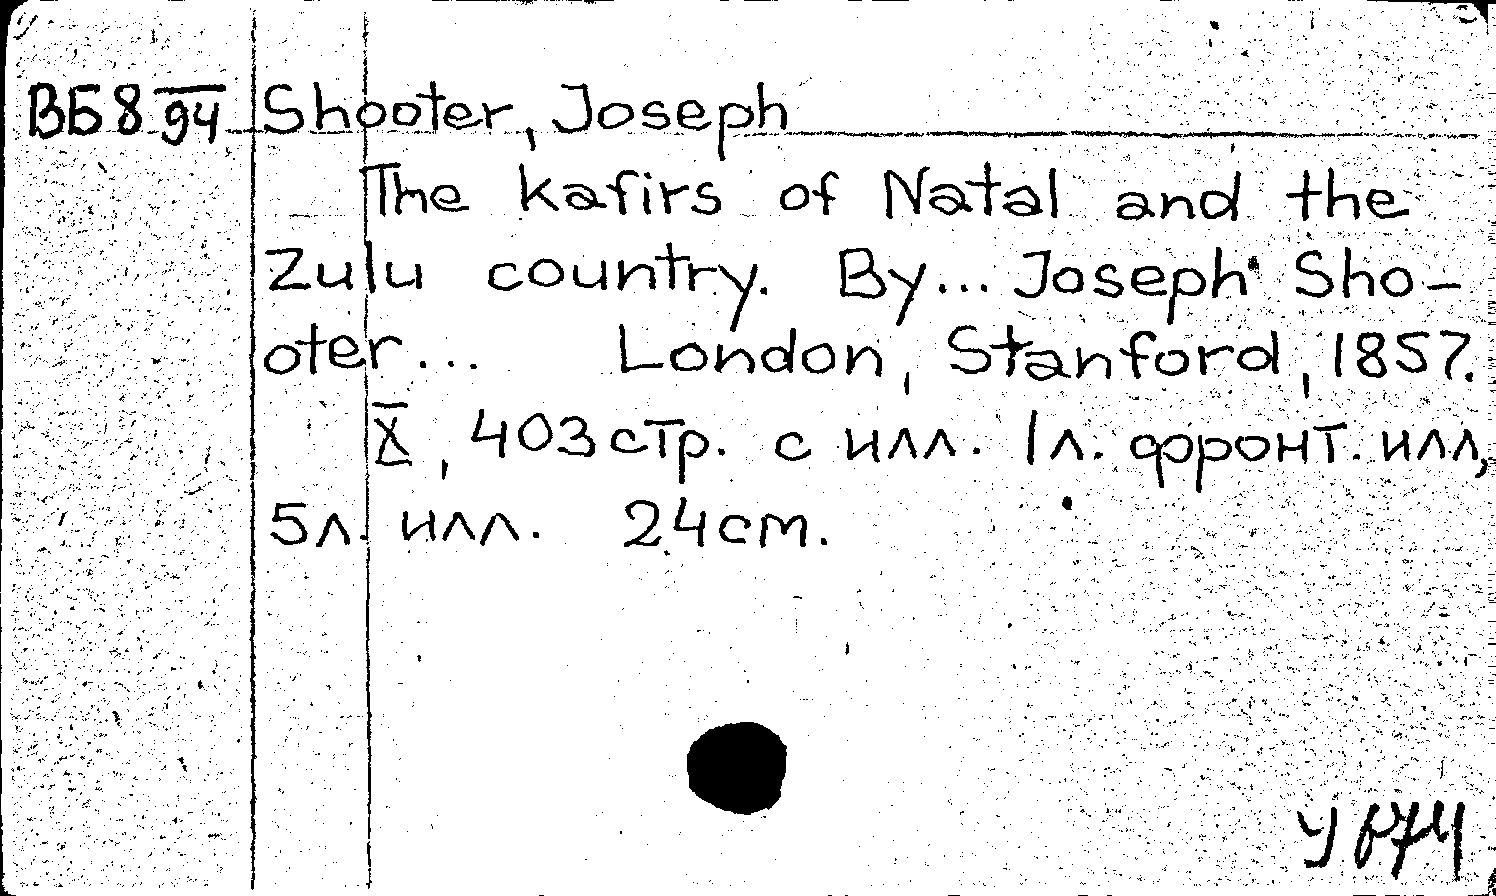 ВБ 8 94 Shooter, Joseph
The kafirs of Natal and the
Zulu country. By... Joseph Sho-
oter... London, Stanford, 1857.
X, 403 стр. с илл. 1 л. фронт. илл,
5 л. илл. 24 см.